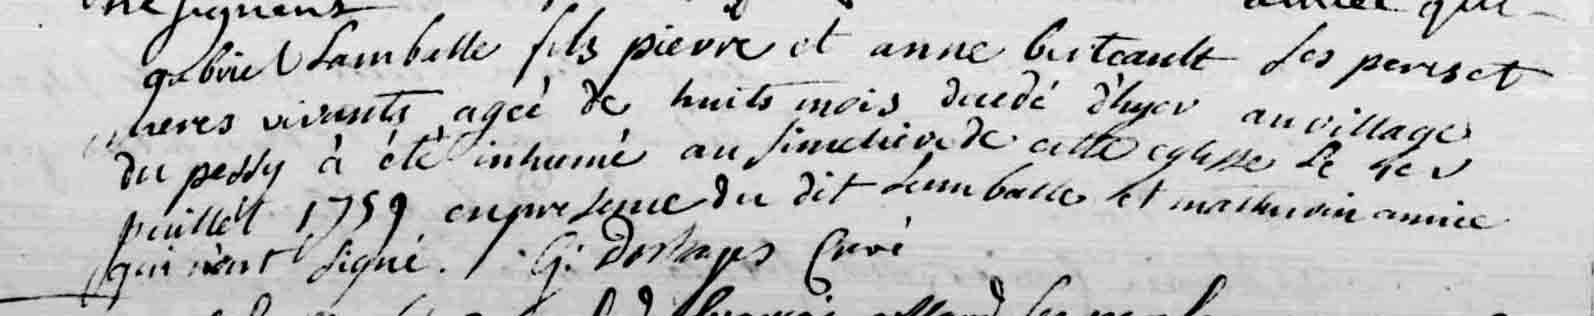 ne signents
gabriel Lamballe fils pierre et anne buteault ses pereset
meres vivants ageé de huits mois decedé d'hyer au village
du pessy à été inhumé au simetiere de cette eglisse le 1er
juillet 1759 enpresence du dit Lamballe et mathurin amice
qui n'ont signé. G: Deshayes Curé